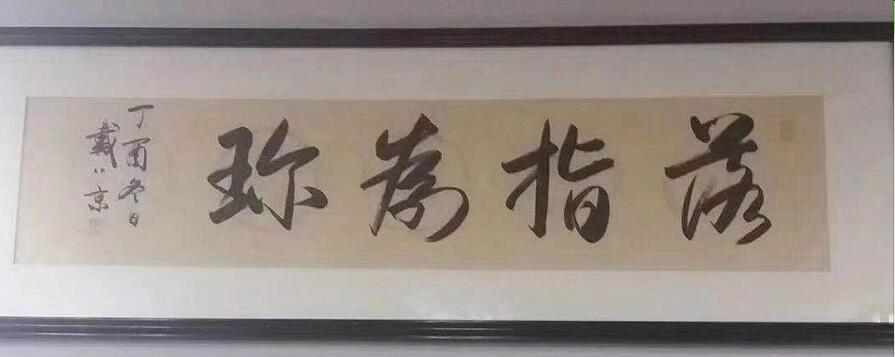 落指為珍
丁酉冬日
戴小京